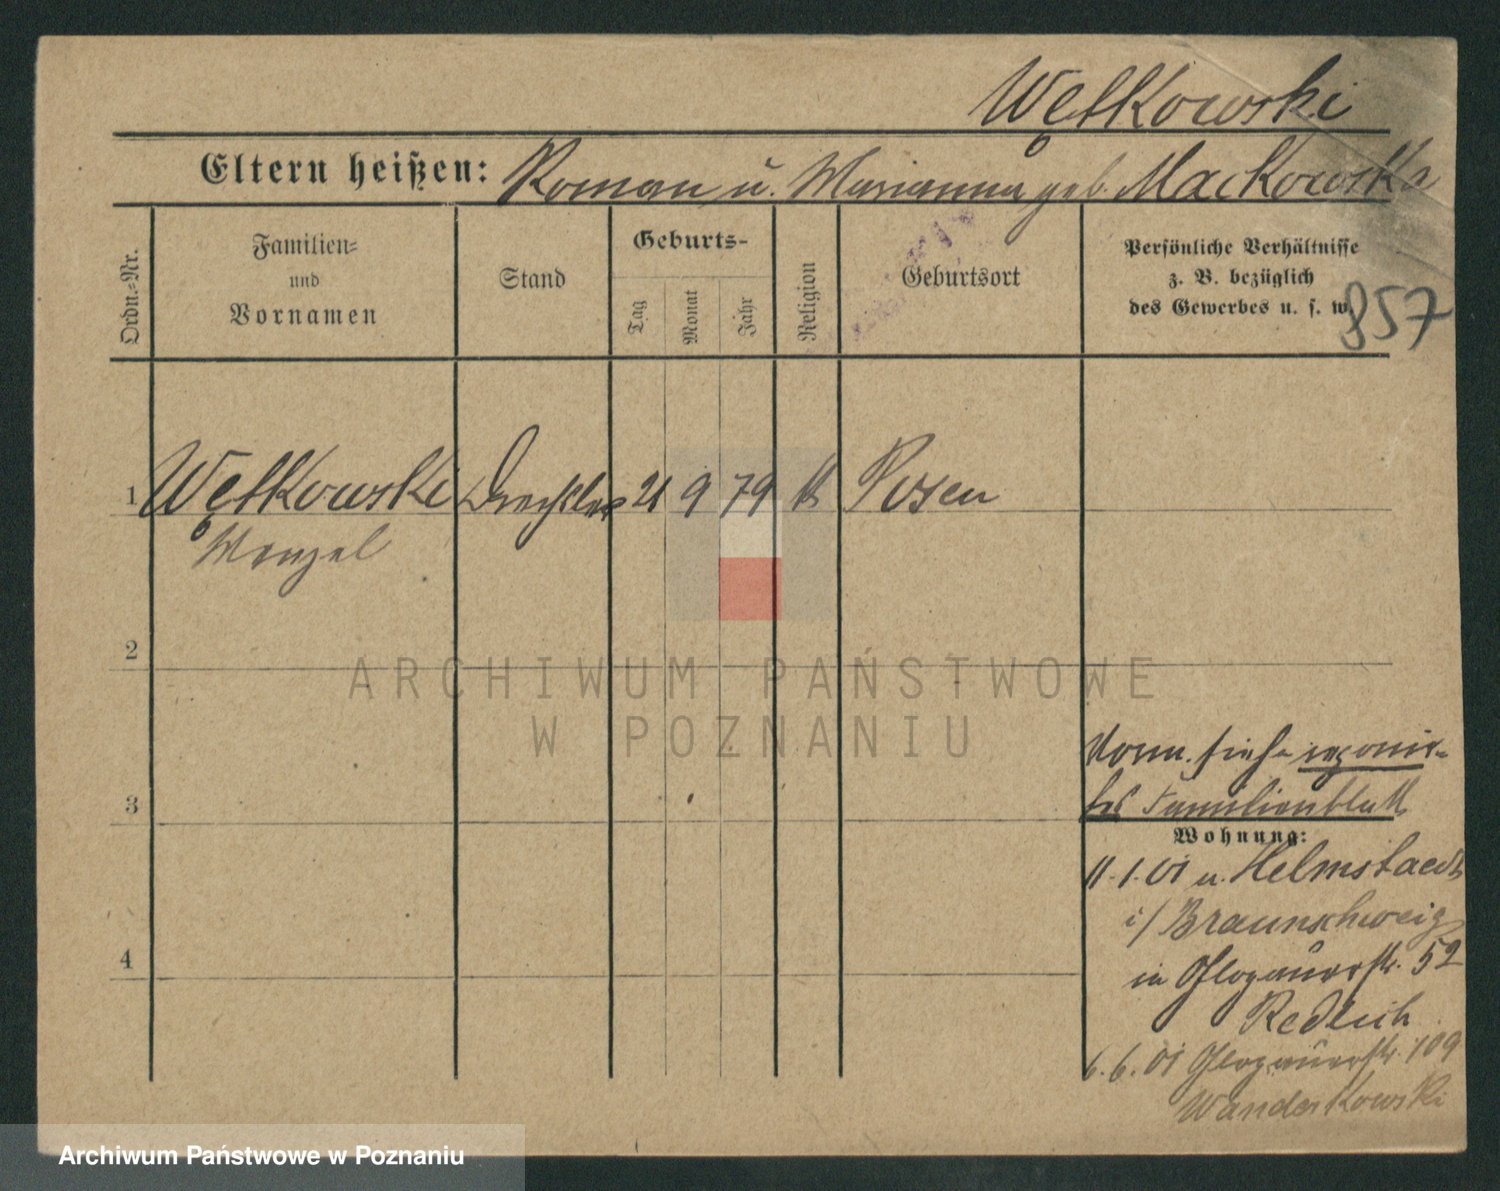 Wełkowski
Eltern heißen: Roman u. Marianna geb. Mackowska
Ordn.-Nr.
Familien-
und
Vornamen
Stand
Geburts-
Tag
Monat
Jahr
Religion
Geburtsort
Persönliche Verhältnisse
z. B. bezüglich
des Gewerbes u. s. w.
857
1 Wełkowski Drechsler 21 9 79 k Posen
Wenzel
2
3
4
Vorm. siehe
Familienblatt
Wohnung:
11.1.01 u. Helmstaedt
i/ Braunschweig
in Glogauerstr. 52
Redlich
6.6.01 Glogauerstr. 109
Wanderkowski
ARCHIWUM PAŃSTWOWE
W POZNANIU
Archiwum Państwowe w Poznaniu